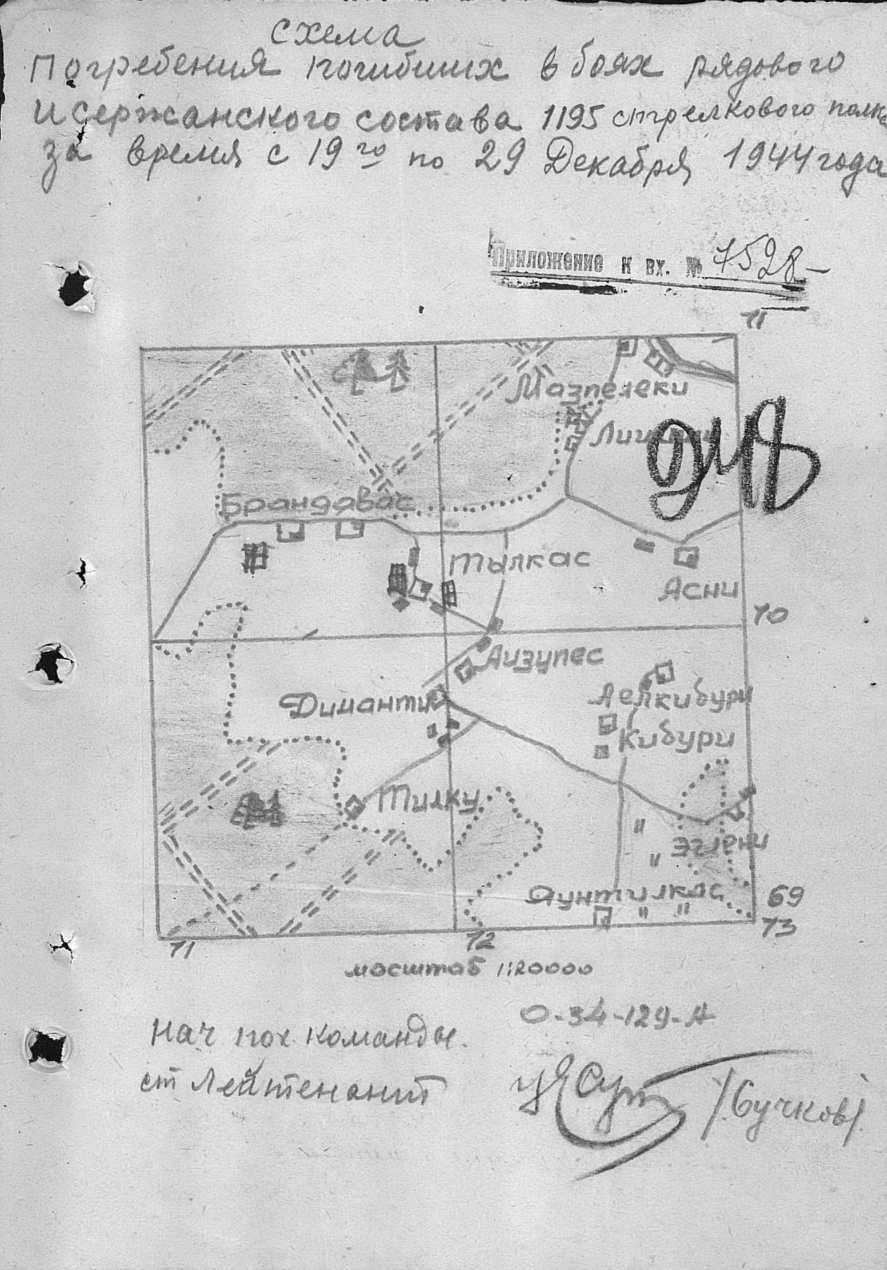 схема
Погребения погибших в боях рядового
и сержанского состава 1195 стрелкового полка
за время с 19го по 29 Декабря 1944 года
Приложение к вх. № 7528-
11
Мазпелеки
Брандавас
Тылкас
Асни
10
Аизупес
Диманти
Аелкибури
Кибури
Тилку
Эглени
Яунтилкас
69
11 12 13
масштаб 1:20000
О-34-129-А
Нач пох команды.
ст Лейтенант
/Сучков/.